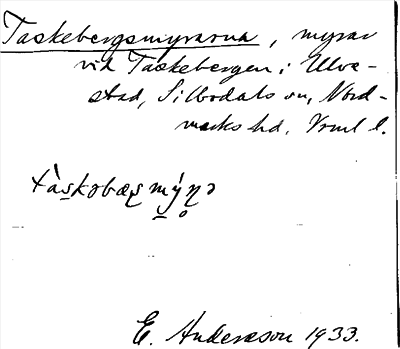 Taskebergsmyrarna, myrar
vid Taskebergen i Ulve-
stad, Silbodals sn, Nord-
marks hd, Vrml l.
tàskəbæʂmýɳə
E. Andersson 1933.